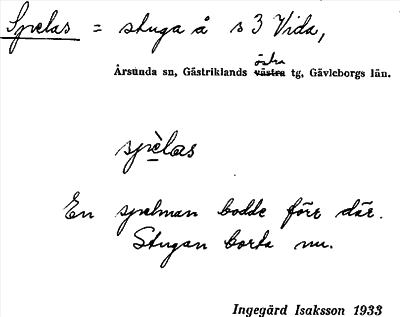 Spelas = stuga å s 3 Vida,
östra
Årsunda sn, Gästriklands västra tg, Gävleborgs län.
spèlas
En spelman bodde förr där.
Stugan borta nu.
Ingegärd Isaksson 1933